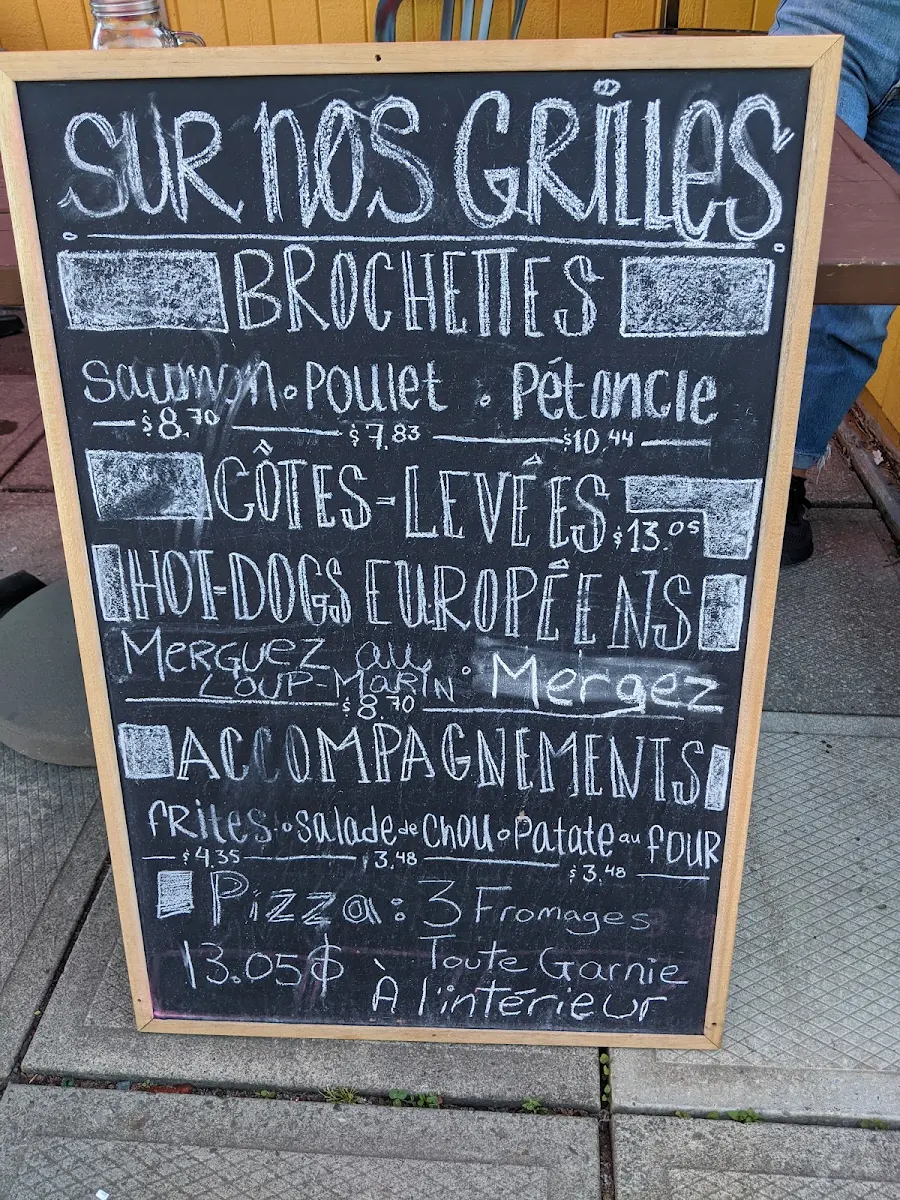 SUR NOS GRILLES
BROCHETTES
Saumon • Poulet • Pétoncle
$8.70 $7.83 $10.44
CÔTES-LEVÉES $13.05
HOT-DOGS EUROPÉENS
MERGUEZ au LOUP-MARIN • Mergez
$8.70
ACCOMPAGNEMENTS
FRites • Salade de Chou • Patate au FOUR
$4.35 $3.48 $3.48
Pizza: 3 Fromages
13.05$ Toute Garnie
À l'intérieur